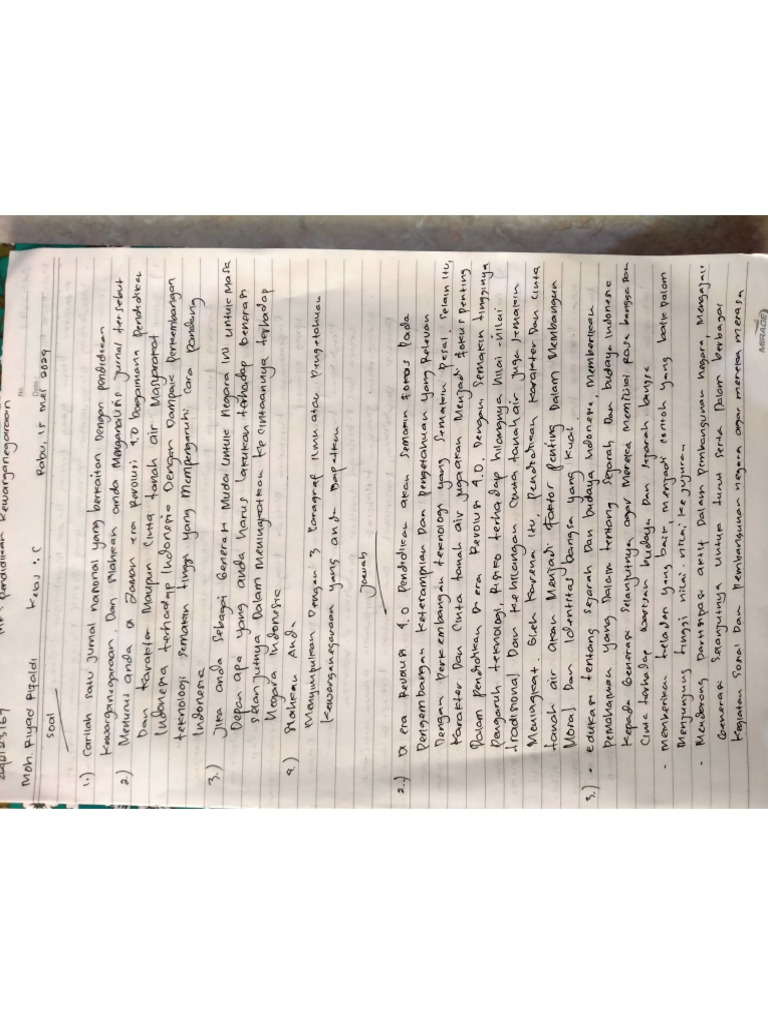 Mk : Pendidikan Kewarganegaraan
Moh. Riyad Rizaldi
Kelas : C
No
Date
Rabu, 15 Mei 2024
Soal
1.) Carilah satu jurnal nasional yang berkaitan Dengan Pendidikan
Kewarganegaraan. Dan silahkan anda Menganalisis jurnal tersebut
2.) Menurut anda di Zaman era Revolusi 4.0 bagaimana Pendidikan
Dan Karakter Maupun Cinta tanah air Masyarakat
Indonesia terhadap Indonesia Dengan Dampak Perkembangan
teknologi semakin tinggi yang Mempengaruhi Cara Pandang
Indonesia
3.) Jika anda sebagai Generasi Muda untuk Negara ini untuk Masa
Depan apa yang anda harus lakukan terhadap Generasi
selanjutnya Dalam Meningkatkan Ke Cintaannya terhadap
Negara Indonesia
a) Silahkan Anda
Menyimpulkan Dengan 3 Paragraf Ilmu atau Pengetahuan
Kewarganegaraan yang anda Dapatkan
Jawab
2.) Di era Revolusi 4.0 Pendidikan akan semakin fokus Pada
Pengembangan Keterampilan Dan Pengetahuan yang Relevan
Dengan Perkembangan teknologi yang Semakin Pesat. Selain Itu,
Karakter Dan Cinta tanah air juga akan Menjadi fokus Penting
Dalam Pendidikan Di era Revolusi 4.0. Dengan Semakin tingginya
Pengaruh teknologi, Risiko terhadap hilangnya Nilai-Nilai
tradisional Dan Kehilangan Cinta tanah air juga semakin
Meningkat. Oleh Karena Itu, Pendidikan Karakter Dan Cinta
tanah air akan Menjadi faktor Penting Dalam Membangun
Moral Dan Identitas bangsa yang Kuat.
3.) - Edukasi tentang sejarah Dan budaya Indonesia, Memberikan
Pemahaman yang Dalam tentang Sejarah Dan budaya Indonesia
Kepada Generasi selanjutnya agar Mereka Memiliki rasa bangga Dan
Cinta terhadap warisan budaya Dan Sejarah bangsa
- Memberikan teladan yang baik, Menjadi Contoh yang baik Dalam
Menjunjung tinggi nilai-nilai Kejujuran
- Mendorong Partisipasi aktif Dalam Pembangunan Negara, Mengajak
Generasi Selanjutnya untuk turut Serta Dalam berbagai
Kegiatan Sosial Dan Pembangunan negara agar mereka merasa
MIRAGE